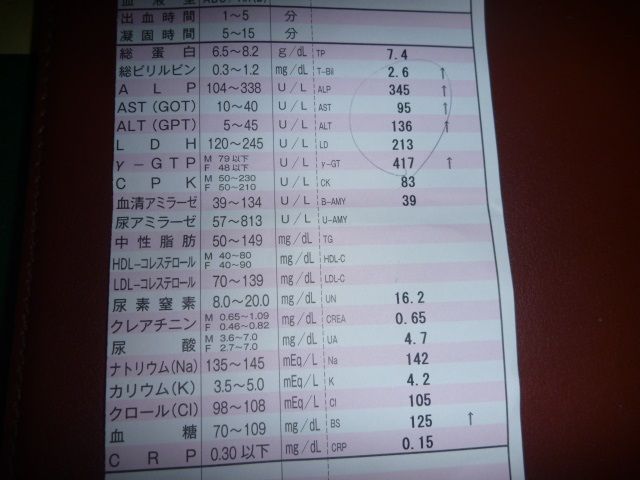 出血時間 1～5 分
凝固時間 5～15 分
総蛋白 6.5～8.2 g/dL TP 7.4
総ビリルビン 0.3～1.2 mg/dL T-Bil 2.6 ↑
ALP 104～338 U/L ALP 345 ↑
AST(GOT) 10～40 U/L AST 95 ↑
ALT(GPT) 5～45 U/L ALT 136 ↑
LDH 120～245 U/L LD 213
γ-GTP M 79以下 F 48以下 U/L γ-GT 417 ↑
CPK M 50～230 F 50～210 U/L CK 83
血清アミラーゼ 39～134 U/L B-AMY 39
尿アミラーゼ 57～813 U/L U-AMY
中性脂肪 50～149 mg/dL TG
HDL-コレステロール M 40～80 F 40～90 mg/dL HDL-C
LDL-コレステロール 70～139 mg/dL LDL-C
尿素窒素 8.0～20.0 mg/dL UN 16.2
クレアチニン M 0.65～1.09 F 0.46～0.82 mg/dL CREA 0.65
尿酸 M 3.6～7.0 F 2.7～7.0 mg/dL UA 4.7
ナトリウム(Na) 135～145 mEq/L Na 142
カリウム(K) 3.5～5.0 mEq/L K 4.2
クロール(Cl) 98～108 mEq/L Cl 105
血糖 70～109 mg/dL BS 125 ↑
CRP 0.30以下 mg/dL CRP 0.15